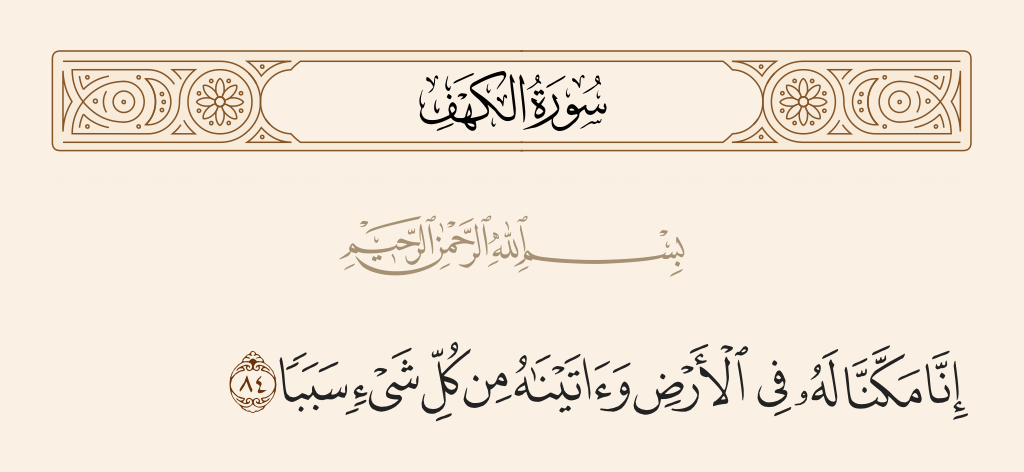 سُورَةُ الكَهۡفِ
بِسۡمِ ٱللَّهِ ٱلرَّحۡمَٰنِ ٱلرَّحِيمِ
إِنَّا مَكَّنَّا لَهُۥ فِى ٱلۡأَرۡضِ وَءَاتَيۡنَٰهُ مِن كُلِّ شَىۡءٍ سَبَبًا ٨٤